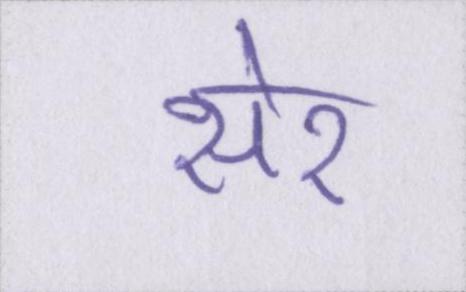 सेर